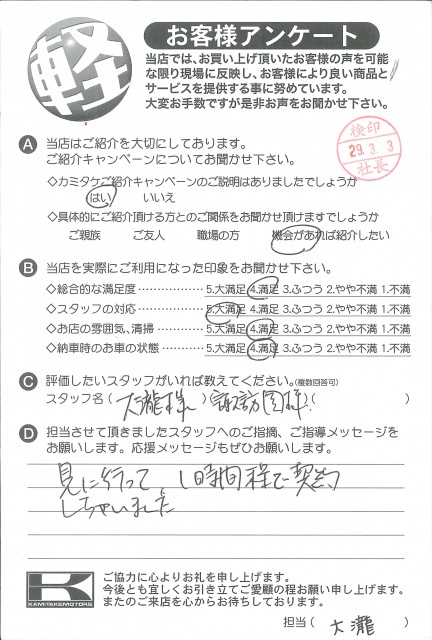 軽
お客様アンケート
当店では、お買い上げ頂いたお客様の声を可能
な限り現場に反映し、お客様により良い商品と
サービスを提供する事に努めています。
大変お手数ですが是非お声をお聞かせ下さい。
検印
29.3.3
社長
A 当店はご紹介を大切にしております。
ご紹介キャンペーンについてお聞かせ下さい。
◇カミタケご紹介キャンペーンのご説明はありましたでしょうか
はい いいえ
◇具体的にご紹介頂ける方とのご関係をお聞かせ頂けますでしょうか
ご親族 ご友人 職場の方 機会があれば紹介したい
B 当店を実際にご利用になった印象をお聞かせ下さい。
◇総合的な満足度‥‥‥‥‥‥ 5.大満足 4.満足 3.ふつう 2.やや不満 1.不満
◇スタッフの対応‥‥‥‥‥‥ 5.大満足 4.満足 3.ふつう 2.やや不満 1.不満
◇お店の雰囲気、清掃‥‥‥‥ 5.大満足 4.満足 3.ふつう 2.やや不満 1.不満
◇納車時のお車の状態‥‥‥‥ 5.大満足 4.満足 3.ふつう 2.やや不満 1.不満
C 評価したいスタッフがいれば教えてください。(複数回答可)
スタッフ名(大瀧様)(諏訪園様)( )
D 担当させて頂きましたスタッフへのご指摘、ご指導メッセージを
お願いします。応援メッセージもぜひお願いします。
見に行って、1時間程で契約
しちゃいました
K
KAMITAKE MOTORS
ご協力に心よりお礼を申し上げます。
今後とも宜しくお引き立てご愛顧の程お願い申し上げます。
またのご来店を心からお待ちしております。
担当( 大瀧 )